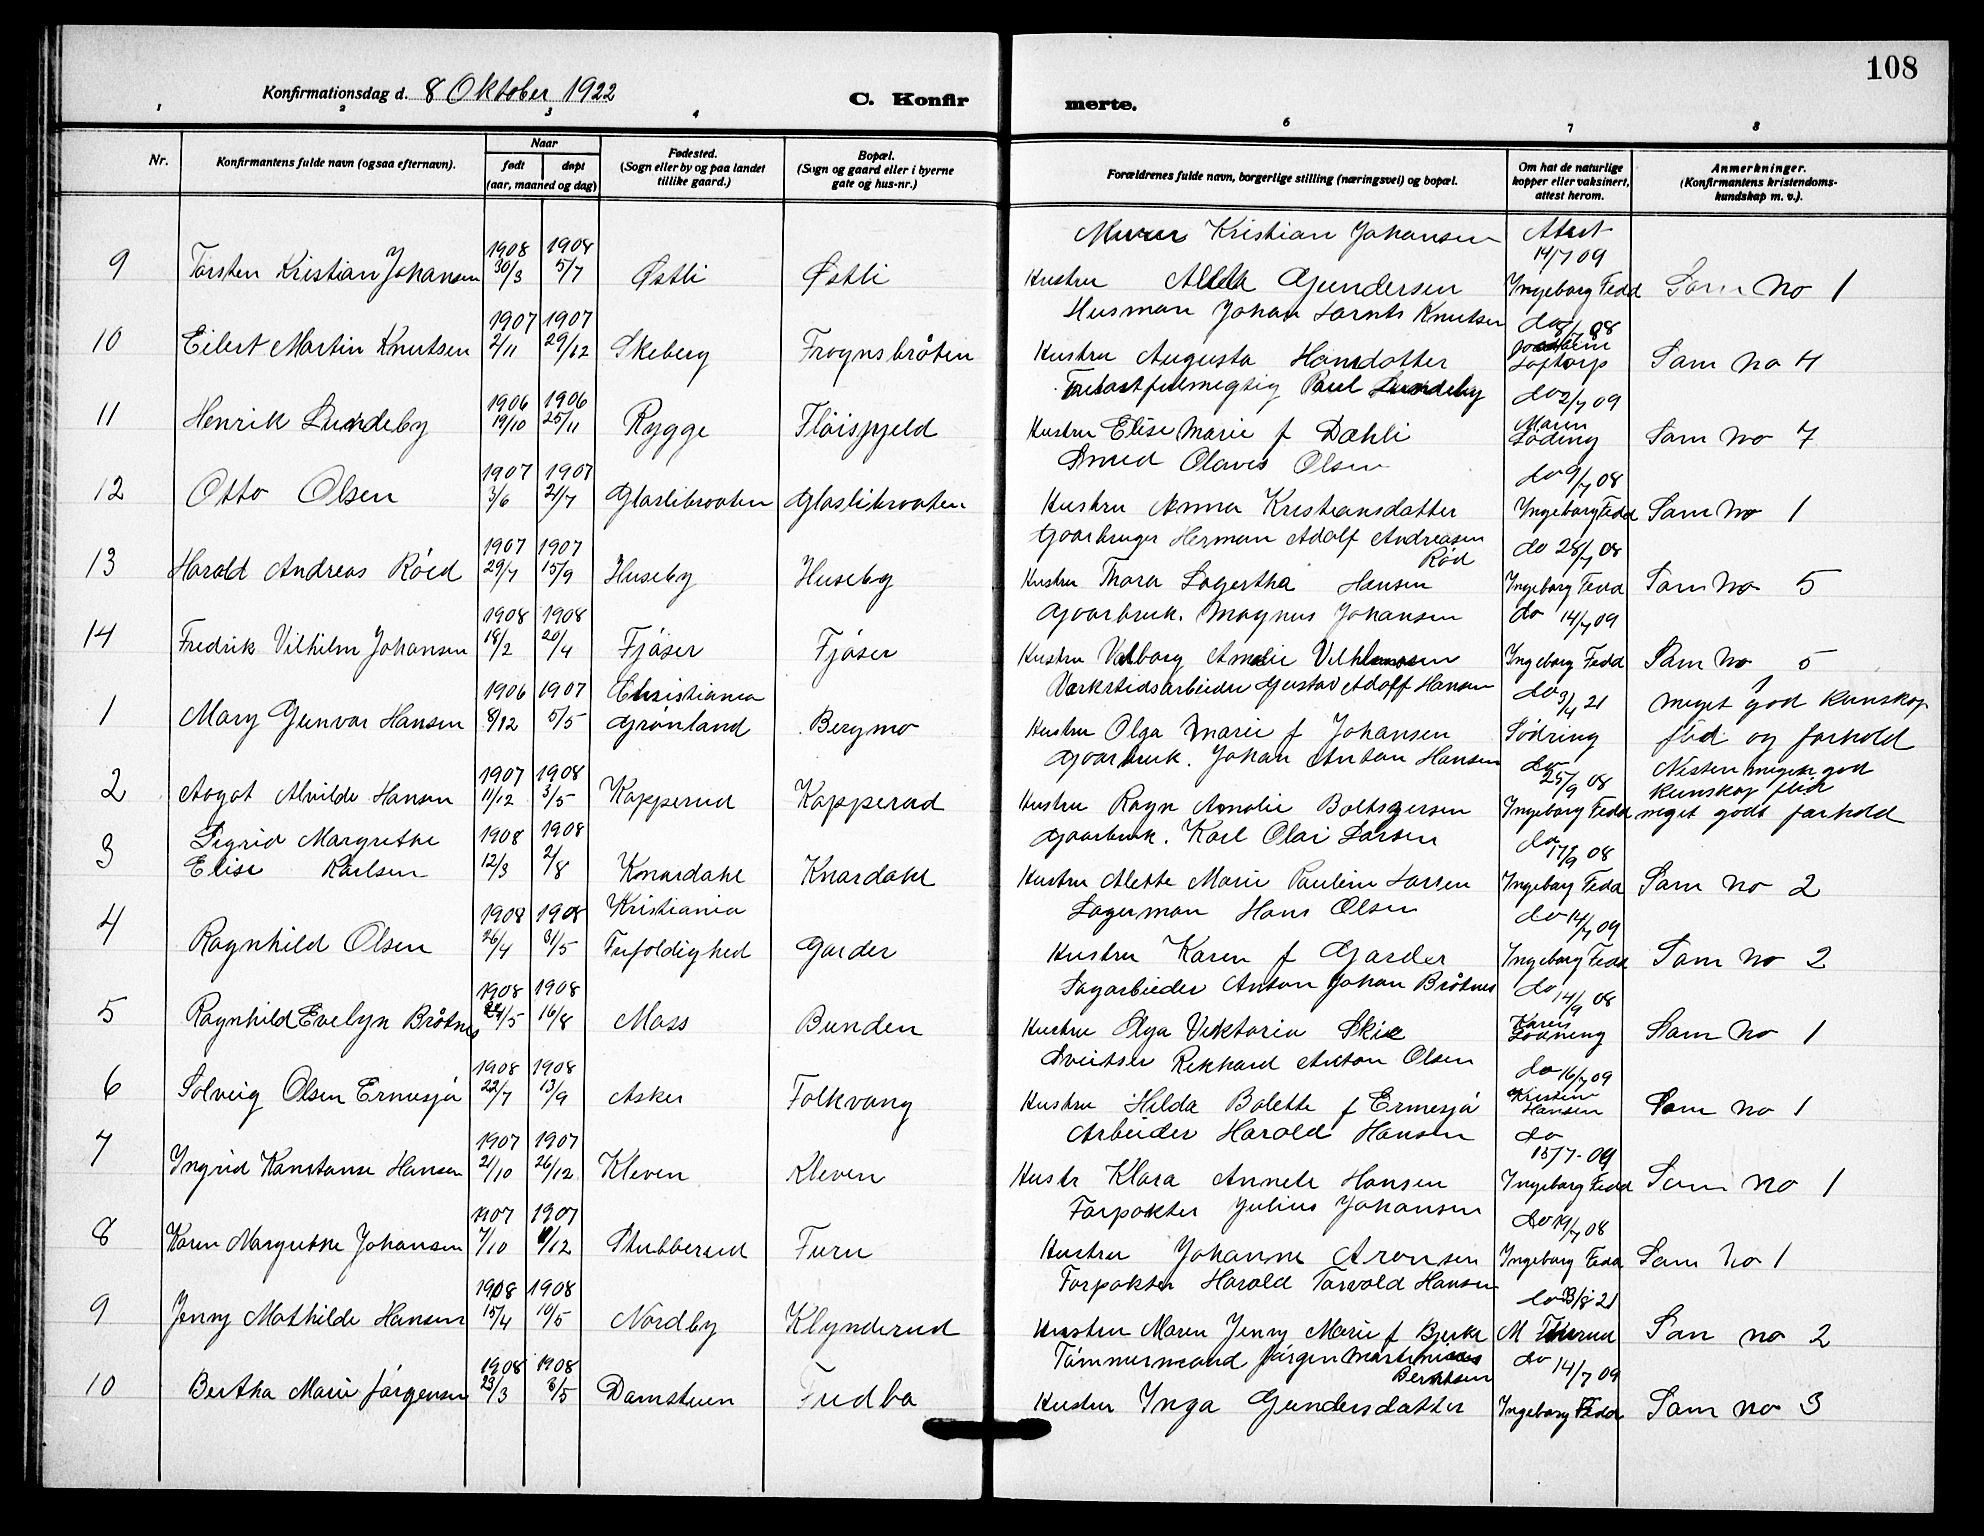 108
Konfirmationsdag d. 8 Oktober 1922
C. Konfir
merte.
1 2 3 4 6 7 8
Nr.
Konfirmantens fulde navn (ogsaa efternavn).
Naar
født døpt
(aar, maaned og dag)
Fødested.
(Sogn eller by og paa landet
tillike gaard.)
Bopæl.
(Sogn og gaard eller i byerne
gate og hus-nr.)
Forældrenes fulde navn, borgerlige stilling (næringsvei) og bopæl.
Om hat de naturlige
kopper eller vaksinert,
attest herom.
Anmerkninger.
(Konfirmantens kristendoms-
kundskap m. v.).
1908 1908 Murer Kristian Johansen Attest
14/7 09
9 Torsten Kristian Johansen 30/3 5/7 Østli Østli Hustru Gundersen Ingeborg Fedd Som No 1
1907 1907 Husman Johan Knutsen do 8/7 08
10 Eilert Martin Knutsen 2/11 29/12 Skeberg Frognsbråten Hustru Augusta Hansdatter Løftorp Som No 4
1906 1906 Paul Lundeby do 2/7 09
11 Henrik Lundeby 19/10 25/11 Rygge Fløispjeld Hustru Elise Marie f Dæhli Maren Söding Som No 7
1907 1907 Smed Olaves Olsen do 9/7 08
12 Otto Olsen 3/6 21/7 Glaslibraaten Glaslibraaten Hustru Anna Kristiansdatter Ingeborg Fedd Som No 1
1907 1907 Gaarbruger Herman Adolf Andreasen do 28/7 08
Röd
13 Harald Andreas Röed 29/7 15/9 Huseby Huseby Hustru Thora Lagertha Hansen Ingeborg Fedd Som No 5
1908 1908 Gaarbruk. Magnus Johansen do 14/7 09
14 Fredrik Vilhelm Johansen 18/2 20/4 Fjöser Fjöser Hustru Valborg Amalie Ingeborg Fedd Som No 5
1906 1907 Christiania Værkstedsarbeider Gustav Adolf Hansen do 3/4 21 meget god kunskap
1 Mary Gunvor Hansen 8/12 5/5 Grönland Bergmo Hustru Olga Marie f Johansen Södring flid og forhold
1907 1908 Gaarbruk. Johan Anton Hansen do 25/9 08 Nesten meget god
kunskap flid
2 Aagot Alvilde Hansen 11/12 3/5 Kopperud Kopperud Hustru Ragn Amalie Boltsgersen Ingeborg Fedd meget godt forhold
Sigrid Margrethe 1908 1908 Gaarbruk. Karl Olai Larsen do 17/9 08
3 Elise Karlsen 12/3 2/8 Knardahl Knardahl Hustru Alette Marie Pauline Larsen Ingeborg Fedd Som No 2
1908 1908 Kristiania Lagerman Hans Olsen do 14/7 09
4 Ragnhild Olsen 26/4 31/5 Trefoldighed Garder Hustru Karen f Garder Ingeborg Fedd Som No 2
1908 1908 Sagarbeider Anton Johan Bråtnes do 14/9 08
5 Ragnhild Evelyn Bråtnes 24/5 16/8 Moss Bunden Hustru Olga Viktoria Skie Karen Som No 1
1908 1908 Sveitser Rikhard Anton Olsen do 16/7 09
6 Solveig Olsen Ermesjö 22/7 13/9 Asker Folkvang Hustru Hilda Bolette f Ermesjö Kristine Hansen Som no 1
1907 1907 Arbeider Harald Hansen do
15/7-09
7 Ingrid Konstanse Hansen 21/10 26/12 Kleven Kleven Hustr Klara Annete Hansen Ingeborg Fedd Som no 1
1907 1907 Forpakter Julius Johansen do 19/7 08
8 Karen Margrethe Johansen 7/10 /12 Stubberud Furu Hustru Johanne Aronsen Ingeborg Fedd Som No 1
1908 1908 Forpakter Harald Torvald Hansen do 23/8 21
9 Jenny Mathilde Hansen 15/4 10/5 Nordby Klynderud Hustru Maren Jenny Marie f Bjerke M Som no 2
1908 1908 Tömmermand Jörgen Martinius do 14/7 09
Berntsen
10 Bertha Marie Jörgensen 23/3 3/5 Damstuen Hustru Inga Gundersdatter Ingeborg Fedd Som no 3